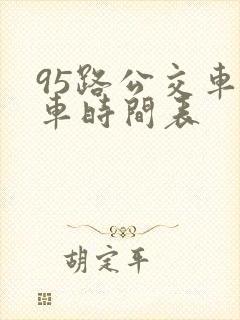 95路公交車
車時間表
胡定平